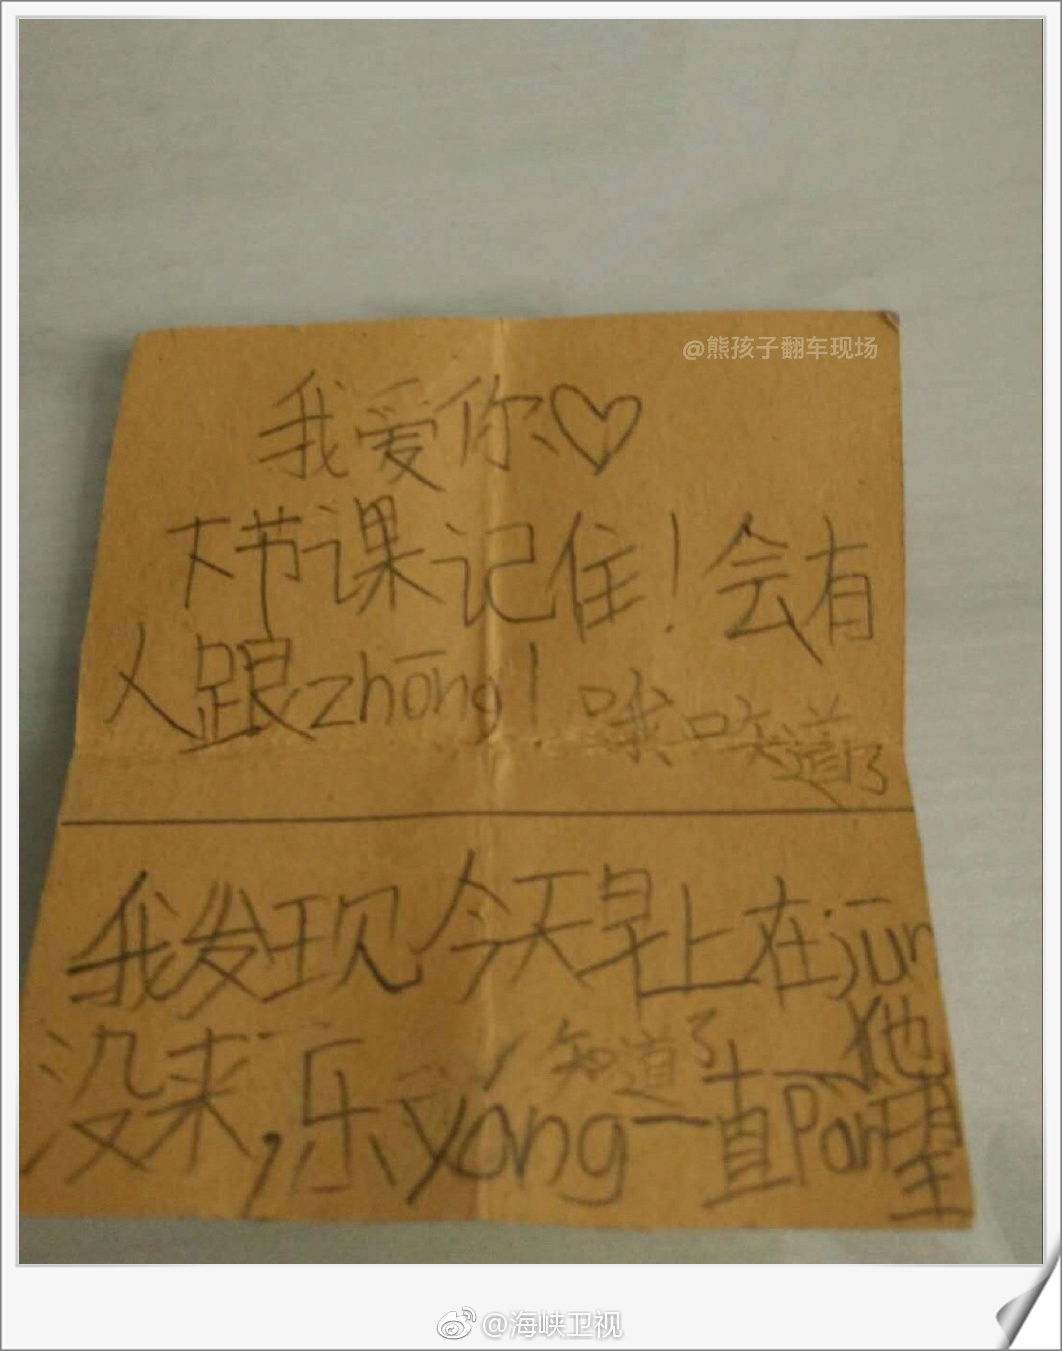 @熊孩子翻车现场
我爱你♡
下节课记住!会有
人跟zhōng!
哦知道了
我发现今天早上在jūn
没来,乐yang一直Pan望
知道了
他
@海峡卫视